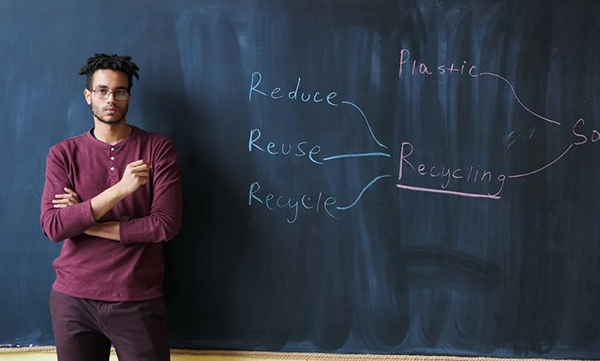 Reduce
Reuse
Recycle
Plastic
Recycling
So